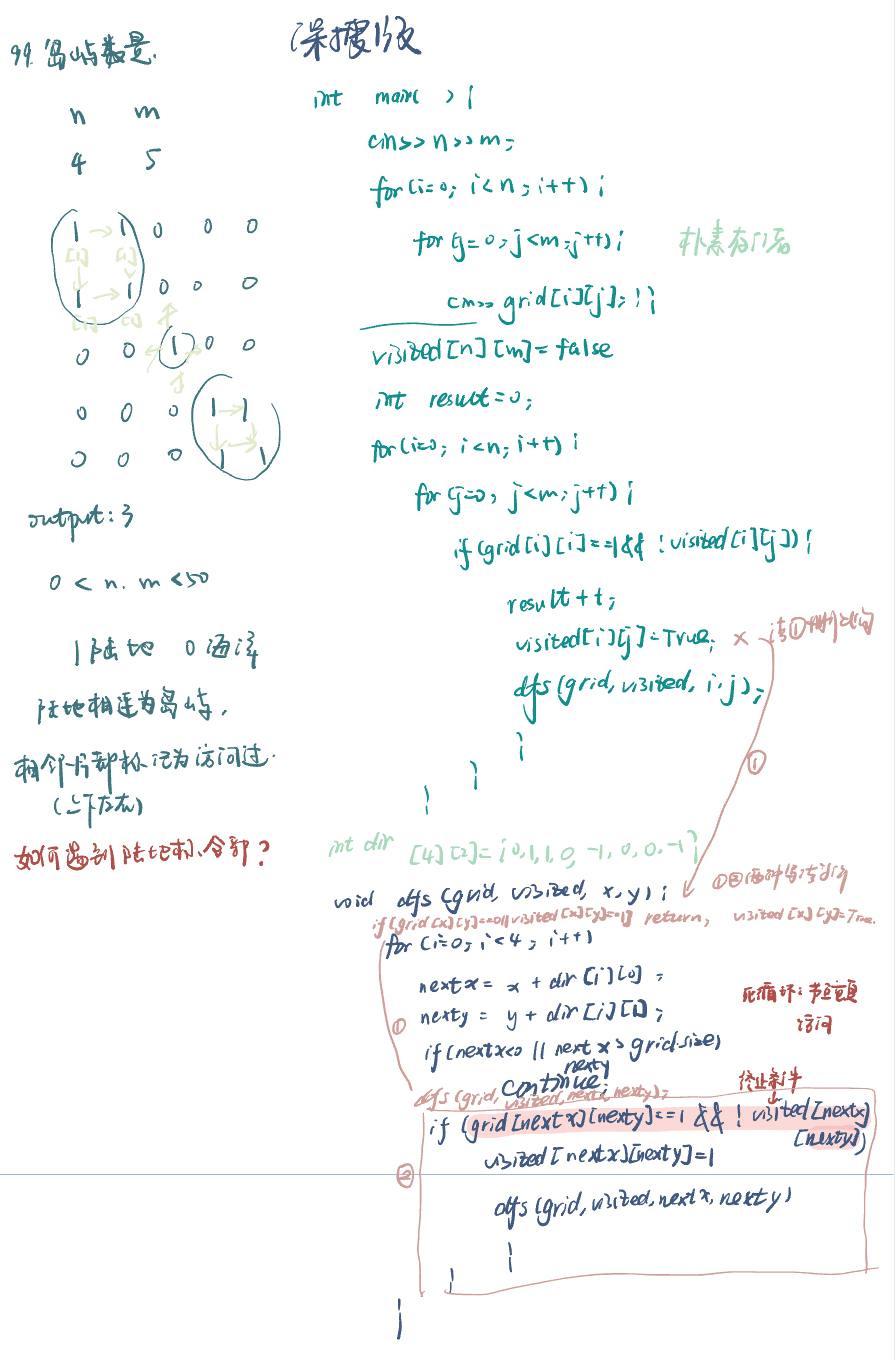 99. 岛屿数量.
深搜版
n m
4 5
1 → 1 0 0 0
[1] [1]
1 → 1 0 0 0
[1] [1]
0 0 1 0 0
0 0 0 1 → 1
0 0 0 1 1
output: 3
0 < n. m < 50
1 陆地 0 海洋
陆地相连为岛屿,
相邻 全部标记为访问过.
(上下左右)
如何遇到陆地标全部?
int main( ) {
cin>>n>>m;
for(i=0; i<n; i++) {
for(j=0; j<m; j++) {
cin>> grid[i][j]; } }
visited[n][m]=false
int result=0;
for(i=0; i<n; i++) {
for(j=0; j<m; j++) {
if(grid[i][i]==1 && !visited[i][j]) {
result++;
visited[i][j]=True; ×
dfs(grid, visited, i, j);
}
}
}
①
int dir [4][2]={0,1,1,0,-1,0,0,-1}
void dfs(grid, visited, x, y) {
①②两种写法
if(grid[x][y]==0||visited[x][y]==1) return; visited[x][y]=True.
for(i=0; i<4; i++)
nextx = x + dir[i][0];
nexty = y + dir[i][1];
①
if(nextx<0 || nextx > grid.size)
nexty
continue;
dfs(grid, visited, nextx, nexty);
死循环: 节点重复
访问
终止条件
if(grid[nextx][nexty]==1 && !visited[nextx]
[nexty])
visited[nextx][nexty]=1
②
dfs(grid, visited, nextx, nexty)
}
}
}